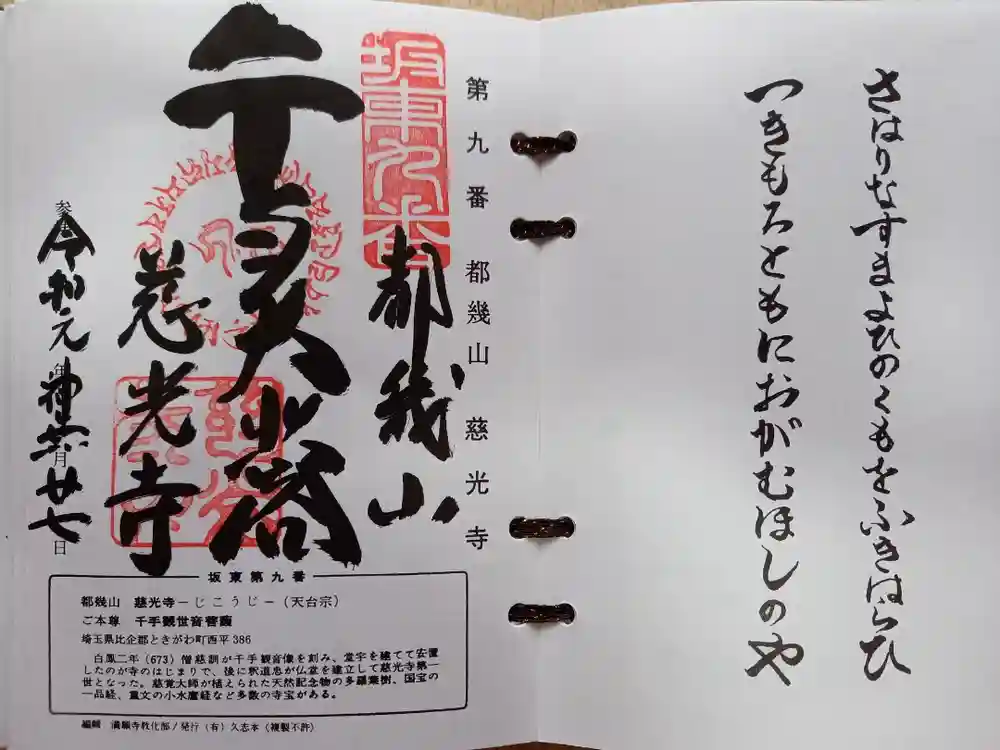 さはりなすまよひのくもをふきはらひ
つきもろともにおがむほしのや
第九番 都幾山 慈光寺
坂東九番
都幾山
慈光寺
令和元年 月廿七日
坂東第九番
都幾山 慈光寺－じこうじ－（天台宗）
ご本尊 千手観世音菩薩
埼玉県比企郡ときがわ町西平386
白鳳二年（673）僧慈訓が千手観音像を刻み、堂宇を建てて安置
したのが寺のはじまりで、後に釈道忠が仏堂を建立して慈光寺第一
世となった。慈覚大師が植えられた天然記念物の多羅葉樹、国宝の
一品経、重文の小水麿経など多数の寺宝がある。
編輯 満願寺教化部／発行（有）久志本（複製不許）